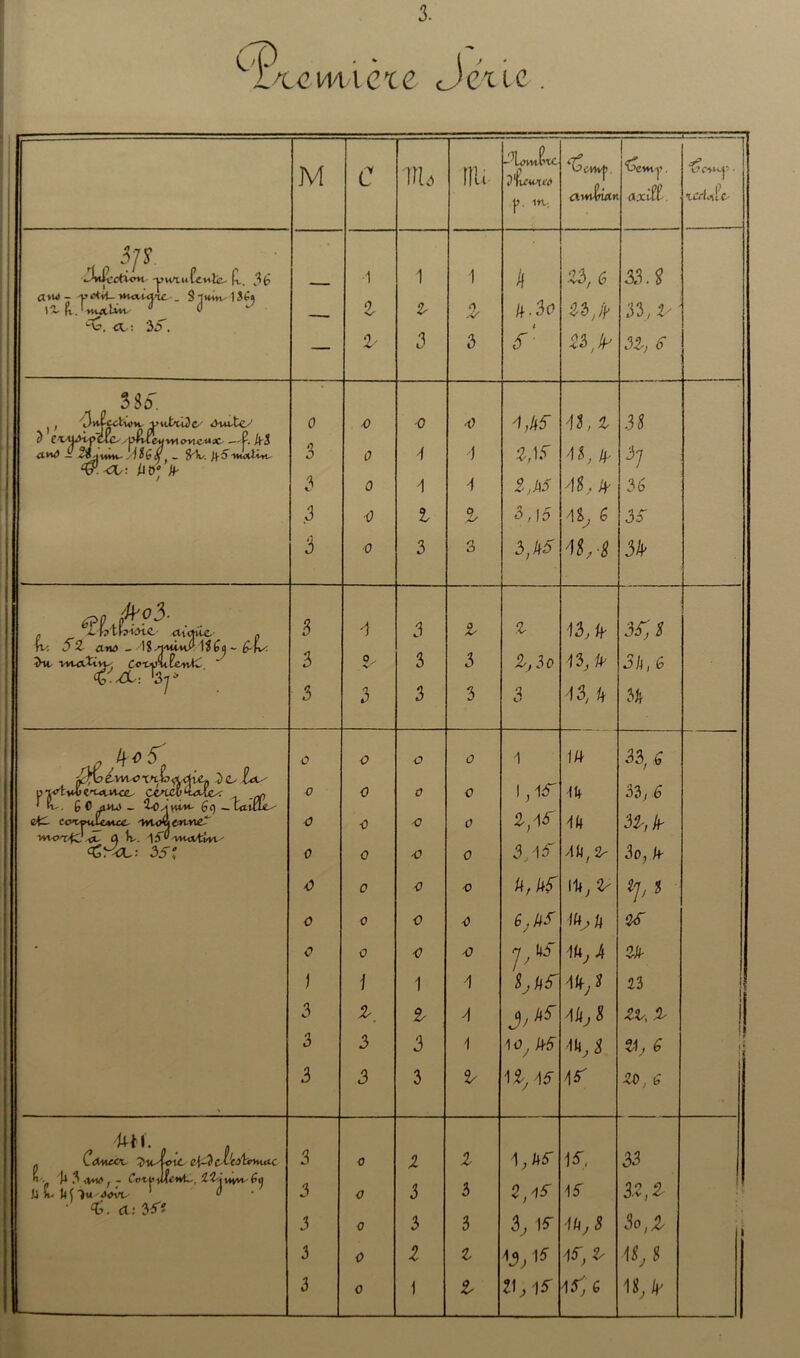 3.
Première Série.
M C Ms Mi Nombre d'heures p. m. Temp. ambian Temp. axill. Temp. rectale
378.
Infection purulente h. 36
ans - petit maigre - 9 juin 1869
12 h. matin
T. a: 35.
— 1 1 1 4 23,6 33.8
— 2 2 2 4.30 23,4 33,2
— 2 3 3 5 23,4 32,6
385.
Infection putride suite
d'érysipèle phlegmoneux — f. 48
ans - 28 juin 1869, - 8 h. 45 matin
T. a:
0 0 0 0 1,45 18,2 38
3 0 1 1 2,15 18,4 37
3 0 1 1 2,45 18,4 36
3 0 2 2 3,15 18,6 35
3 0 3 3 3,45 18,8 34
403.
Phthisie aigüe
h. 52 ans - 18 juin 1869 - 6 h.
du matin, corpulent.
T. a: 37°
3 1 3 2 2 13,4 35,8
3 2 3 3 2,30 13,4 34,6
3 3 3 3 3 13,4 34
405
Hémorrhagie de la
protubérance cérébrale
h. 60 ans - 20 juin 69 - taille
et corpulence moyenne
mort à 9 h. 15 matin
T. a: 35°
0 0 0 0 1 14 33,6
0 0 0 0 1,15 14 33,6
0 0 0 0 2,15 14 32,4
0 0 0 0 3,15 14,2 30,4
0 0 0 0 4,45 14,2 27,8
0 0 0 0 6,45 14,4 25
0 0 0 0 7,45 14,4 24
1 1 1 1 8,45 14,8 23
3 2 2 1 9,45 14,8 22,2
3 3 3 1 10,45 14,8 21,6
3 3 3 2 12,15 15 20,6
411.
Cancer du foie et de l'estomac
h. 43 ans, - Corpulent, 22 juin 69
4 h. 45 du soir
T. a: 35°
3 0 2 2 1,45 15, 33
3 0 3 3 2,15 15 32,2
3 0 3 3 3,15 14,8 30,2
3 0 2 2 13,15 15,2 18,8
3 0 1 2 21,15 15,6 18,4